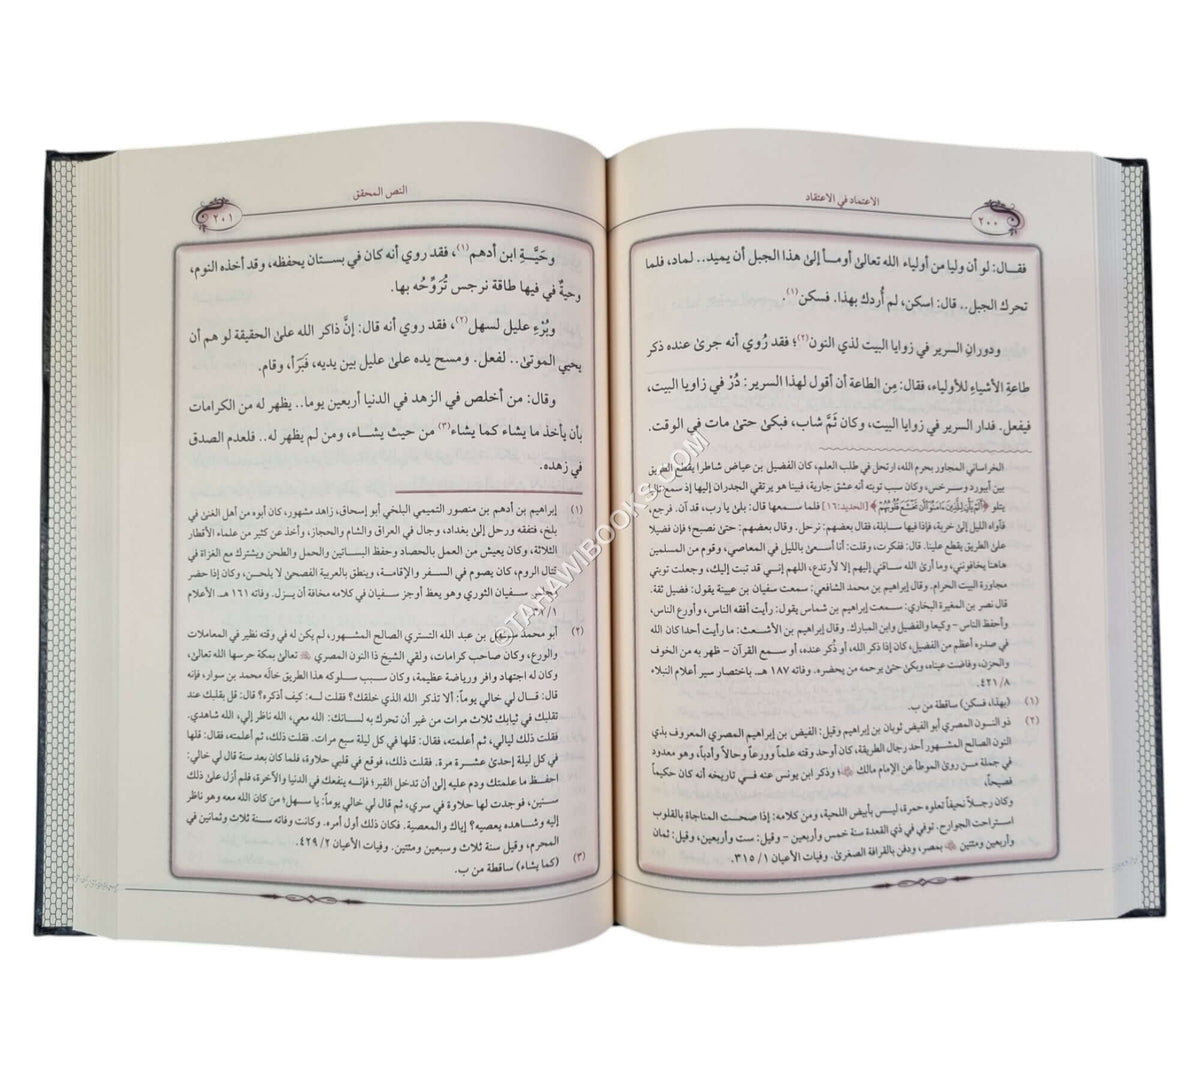 الاعتماد في الاعتقاد
٢٠٠
فقال: لو أن وليا من أولياء الله تعالى أومأ إلى هذا الجبل أن يميد.. لماد، فلما
تحرك الجبل.. قال: اسكن، لم أُردك بهذا. فسكن(١).
ودوران السرير في زوايا البيت لذي النون(٢)؛ فقد رُوي أنه جرى عنده ذكر
طاعةِ الأشياءِ للأولياء، فقال: مِن الطاعة أن أقول لهذا السرير: دُرْ في زاويا البيت،
فيفعل. فدار السرير في زوايا البيت، وكان ثَمَّ شاب، فبكى حتى مات في الوقت.
الخراساني المجاور بحرم الله، ارتحل في طلب العلم، كان الفضيل بن عياض شاطرا يقطع الطريق
بين أبيورد وسرخس، وكان سبب توبته أنه عشق جارية، فبينا هو يرتقي الجدران إليها إذ سمع تاليا
يتلو ﴿أَلَمْ يَأْنِ لِلَّذِينَ ءَامَنُوٓا۟ أَن تَخْشَعَ قُلُوبُهُمْ﴾ [الحديد:١٦] فلما سمعها قال: بلى يا رب، قد آن. فرجع،
فآواه الليل إلى خربة، فإذا فيها سابلة، فقال بعضهم: نرحل. وقال بعضهم: حتى نصبح؛ فإن فضيلا
على الطريق يقطع علينا. قال: ففكرت، وقلت: أنا أسعى بالليل في المعاصي، وقوم من المسلمين
هاهنا يخافونني، وما أرى الله ساقني إليهم إلا لأرتدع، اللهم إني قد تبت إليك، وجعلت توبتي
مجاورة البيت الحرام. وقال إبراهيم بن محمد الشافعي: سمعت سفيان بن عيينة يقول: فضيل ثقة.
قال نصر بن المغيرة البخاري: سمعت إبراهيم بن شماس يقول: رأيت أفقه الناس، وأورع الناس،
وأحفظ الناس - وكيعا والفضيل وابن المبارك. وقال إبراهيم بن الأشعث: ما رأيت أحدا كان الله
في صدره أعظم من الفضيل، كان إذا ذكر الله، أو ذُكر عنده، أو سمع القرآن - ظهر به من الخوف
والحزن، وفاضت عيناه، وبكى حتى يرحمه من يحضره. وفاته ١٨٧ هـ. باختصار سير أعلام النبلاء
٨/ ٤٢١.
(١) (بهذا، فسكن) ساقطة من ب.
(٢) ذو النون المصري أبو الفيض ثوبان بن إبراهيم وقيل: الفيض بن إبراهيم المصري المعروف بذي
النون الصالح المشهور أحد رجال الطريقة، كان أوحد وقته علماً وورعاً وحالاً وأدباً، وهو معدود
في جملة من روى الموطأ عن الإمام مالك ؛ وذكر ابن يونس عنه في تاريخه أنه كان حكيماً
فصيحاً،
وكان رجلاً نحيفاً تعلوه حمرة، ليس بأبيض اللحية، ومن كلامه: إذا صحت المناجاة بالقلوب
استراحت الجوارح. توفي في ذي القعدة سنة خمس وأربعين - وقيل: ست وأربعين، وقيل: ثمان
وأربعين ومئتين بمصر، ودفن بالقرافة الصغرى. وفيات الأعيان ١/ ٣١٥.
النص المحقق
٢٠١
وحَيَّةِ ابن أدهم(١)، فقد روي أنه كان في بستان يحفظه، وقد أخذه النوم،
وحيةٌ في فيها طاقة نرجس تُرَوِّحُه بها.
وبُرْءِ عليل لسهل(٢)، فقد روي أنه قال: إنَّ ذاكر الله على الحقيقة لو هم أن
يحيي الموتى.. لفعل. ومسح يده على عليل بين يديه، فَبَرَأَ، وقام.
وقال: من أخلص في الزهد في الدنيا أربعين يوما.. يظهر له من الكرامات
بأن يأخذ ما يشاء كما يشاء(٣) من حيث يشاء، ومن لم يظهر له.. فلعدم الصدق
في زهده.
(١) إبراهيم بن أدهم بن منصور التميمي البلخي أبو إسحاق، زاهد مشهور، كان أبوه من أهل الغنى في
بلخ، ففقه ورحل إلى بغداد، وجال في العراق والشام والحجاز، وأخذ عن كثير من علماء الأقطار
الثلاثة، وكان يعيش من العمل بالحصاد وحفظ البساتين والحمل والطحن ويشترك مع الغزاة في
قتال الروم، كان يصوم في السفر والإقامة، وينطق بالعربية الفصحى لا يلحن، وكان إذا حضر
سفيان الثوري وهو يعظ أوجز سفيان في كلامه مخافة أن يزل. وفاته ١٦١ هـ. الأعلام
١/
(٢) أبو محمد سهل بن عبد الله التستري الصالح المشهور، لم يكن له في وقته نظير في المعاملات
والورع، وكان صاحب كرامات، ولقي الشيخ ذا النون المصري تعالى بمكة حرسها الله تعالى،
وكان له اجتهاد وافر ورياضة عظيمة، وكان سبب سلوكه هذا الطريق خاله محمد بن سوار، فإنه
قال: قال لي خالي يوماً: ألا تذكر الله الذي خلقك؟ فقلت له: كيف أذكره؟ قال: قل بقلبك عند
تقلبك في ثيابك ثلاث مرات من غير أن تحرك به لسانك: الله معي، الله ناظر إلي، الله شاهدي.
فقلت ذلك ليالي، ثم أعلمته، فقال: قلها في كل ليلة سبع مرات. فقلت ذلك، ثم أعلمته، فقال: قلها
في كل ليلة إحدى عشرة مرة. فقلت ذلك، فوقع في قلبي حلاوة، فلما كان بعد سنة قال لي خالي:
احفظ ما علمتك ودم عليه إلى أن تدخل القبر؛ فإنه ينفعك في الدنيا والآخرة، فلم أزل على ذلك
سنين، فوجدت لها حلاوة في سري، ثم قال لي خالي يوماً: يا سهل؛ من كان الله معه وهو ناظر
إليه وشاهده يعصيه؟ إياك والمعصية. فكان ذلك أول أمره. وكانت وفاته سنة ثلاث وثمانين في
المحرم، وقيل سنة ثلاث وسبعين ومئتين. وفيات الأعيان ٢/ ٤٢٩.
(٣) (كما يشاء) ساقطة من ب.
TAHAWIBOOKS.COM